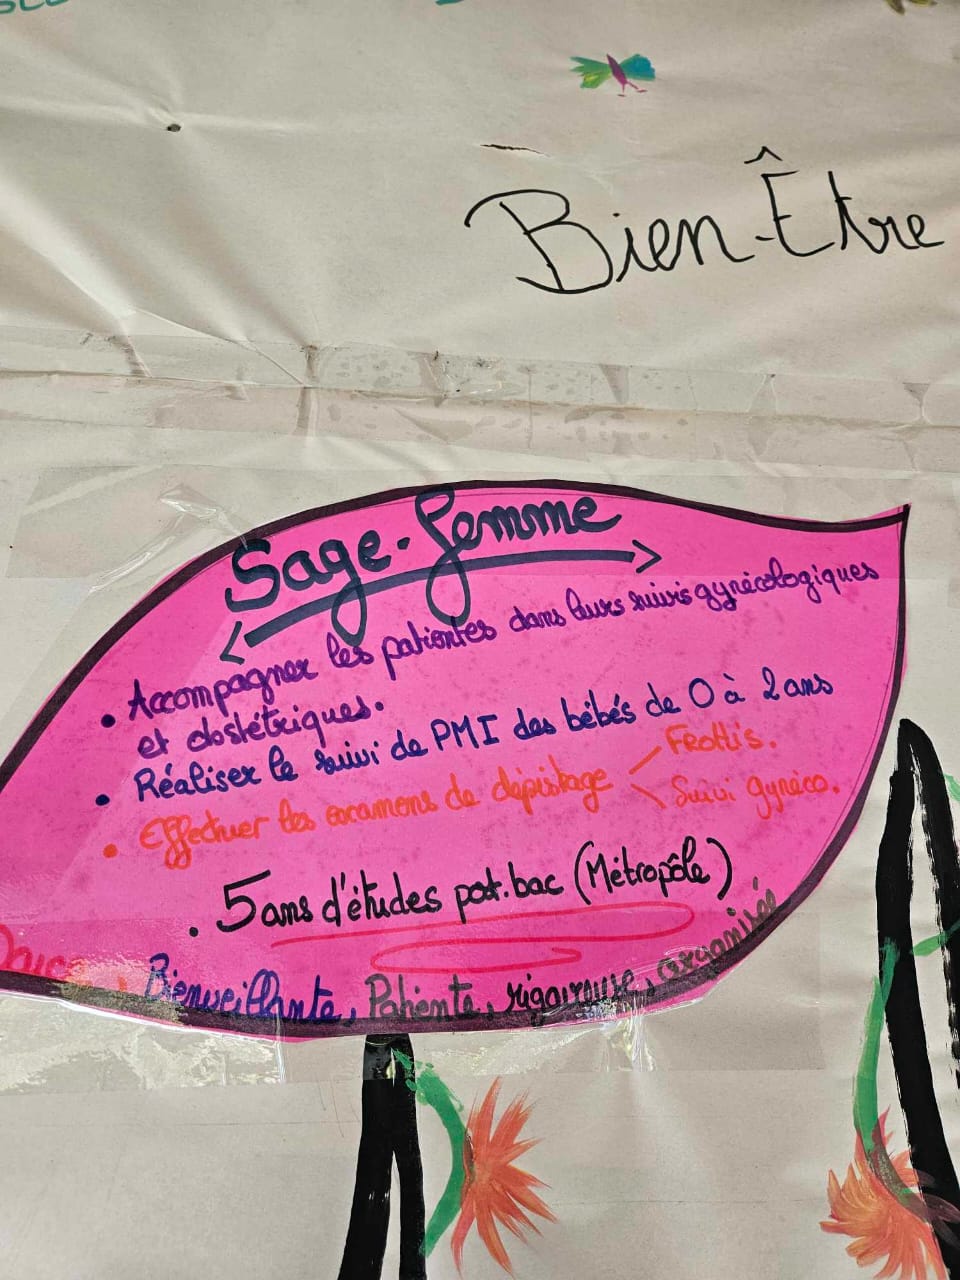 Bien-Être
Sage-femme
• Accompagner les patientes dans leurs suivis gynécologiques
et obstétriques.
• Réaliser le suivi de PMI des bébés de 0 à 2 ans
• Effectuer les examens de dépistage Frottis.
Suivi gynéco.
. 5 ans d'études post-bac (Métropôle)
Bienveillante, Patiente, rigoureuse, organisée